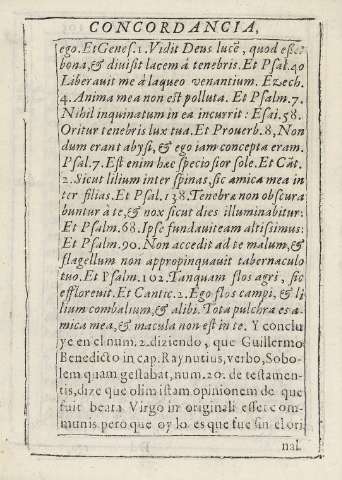 CONCORDANCIA,
ego. Et Genes. 1. Vidit Deus lucē, quod esset
bona, & divisit lacem à tenebris. Et Psal. 40
Liberavit me à laqueo venantium. Ezech.
4. Anima mea non est polluta. Et Psalm. 7.
Nihil inquinatum in ea incurrit: Esai. 58.
Oritur tenebris lux tua. Et Prouerb. 8, Non
dum erant abysi, & ego iam concepta eram.
Psal. 7. Est enim hæc speciosior sole. Et Cāt.
2. Sicut lilium inter spinas, sic amica mea in
ter filias. Et Psal. 138. Tenebræ non obscura
buntur à te, & nox sicut dies illuminabitur:
Et Psalm. 68. Ipse fundavit eam altissimus:
Et Psalm. 90. Non accedit ad te malum, &
flagellum non appropinquavit tabernaculo
tuo. Et Psalm. 102. Tanquam flos agri, sic
effloreuit. Et Cantic. 2. Ego flos campi, & li
lium combalium, & alibi. Tota pulchra es a
mica mea, & macula non est in te. Y conclu
ye en el num. 2. diziendo, que Guillermo
Benedicto in cap. Raynutius, verbo, Sobo-
lem quam gestabat, num. 20. de testamen-
tis, dize que olim istam opinionem de que
fuit beata Virgo in originali esset com-
munis pero que oy lo es que fue sin el ori
nal.